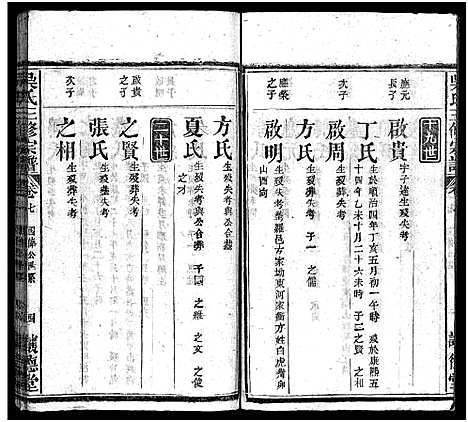 吳氏三修宗譜
十九世
應元
長子
啟貴
字子達生歿失考
丁氏
生於順治四年丁亥五月初一午時 歿於康熙五
十四年乙未十月二十六未時 子二之賢 之相
次子
啟周
生歿葬失考
方氏
生歿葬失考 子一 之儒
應榮
之子
啟明
生歿失考葬羅邑方家坳東河宋衝方白虎嘴卯
山酉向
方氏
生歿失考與公合葬
夏氏
生歿失考與公合葬 子四 之維 之文 之俊
之才
二十世
啟貴
之子
之賢
生歿葬失考
張氏
生歿葬失考
次子
之相
生歿葬失考
吳氏三修宗譜
卷七
四
德堂